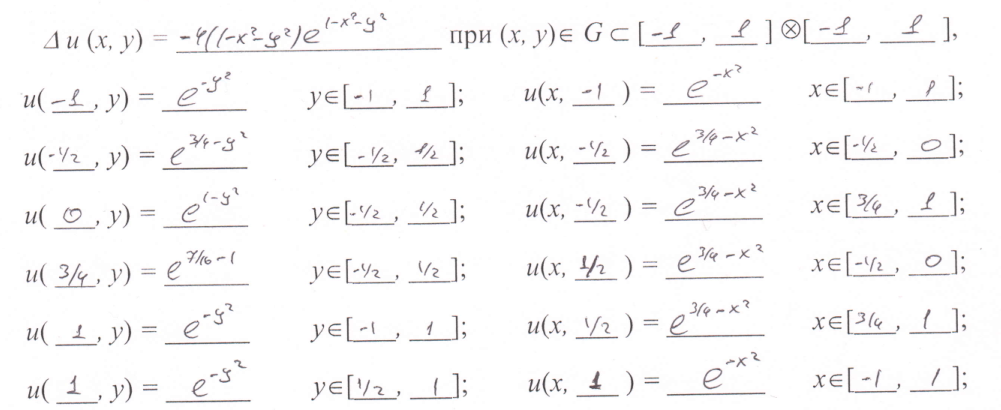 Δu (x, y) = -4(1-x²-y²)e^{1-x²-y²} при (x, y)∈ G ⊂ [-1, 1] ⊗[-1, 1],
u(-1, y) = e^{-y²} y∈[-1, 1]; u(x, -1) = e^{-x²} x∈[-1, 1];
u(-1/2, y) = e^{3/4-y²} y∈[-1/2, 1/2]; u(x, -1/2) = e^{3/4-x²} x∈[-1/2, 0];
u(0, y) = e^{1-y²} y∈[-1/2, 1/2]; u(x, -1/2) = e^{3/4-x²} x∈[3/4, 1];
u(3/4, y) = e^{7/16-1} y∈[-1/2, 1/2]; u(x, 1/2) = e^{3/4-x²} x∈[-1/2, 0];
u(1, y) = e^{-y²} y∈[-1, 1]; u(x, 1/2) = e^{3/4-x²} x∈[3/4, 1];
u(1, y) = e^{-y²} y∈[1/2, 1]; u(x, 1) = e^{-x²} x∈[-1, 1];